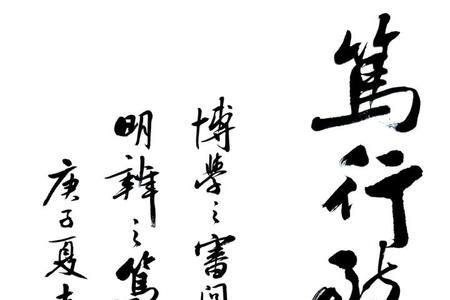 篤行
博學之審問
明辨之篤
庚子夏